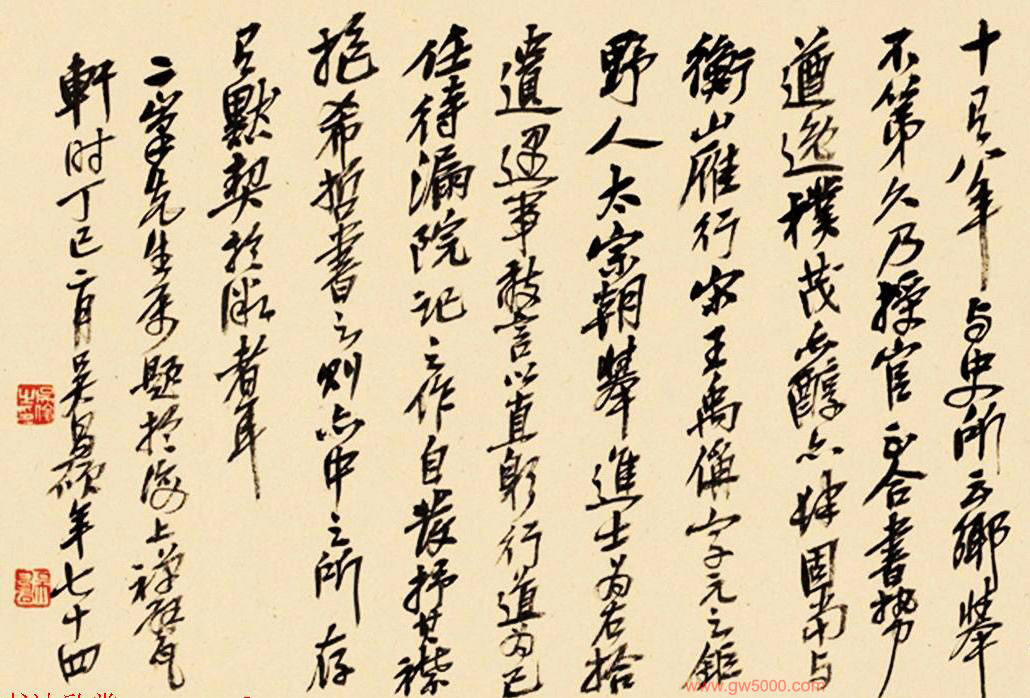 十有八年与史所云鄉舉
不第久乃授官正合書勢
遒逸樸茂亦醇亦肆固当与
衡山雁行宋王禹偁字元之鉅
野人太宗朝舉進士为右拾
遺遇事敢言以直躬行道为己
任待漏院记之作自發抒其襟
抱希哲書之则亦中之所存
有默契於微者耳
二峯先生属題於海上禪甓
軒时丁巳二月吴昌碩年七十四
www.gw5000.com